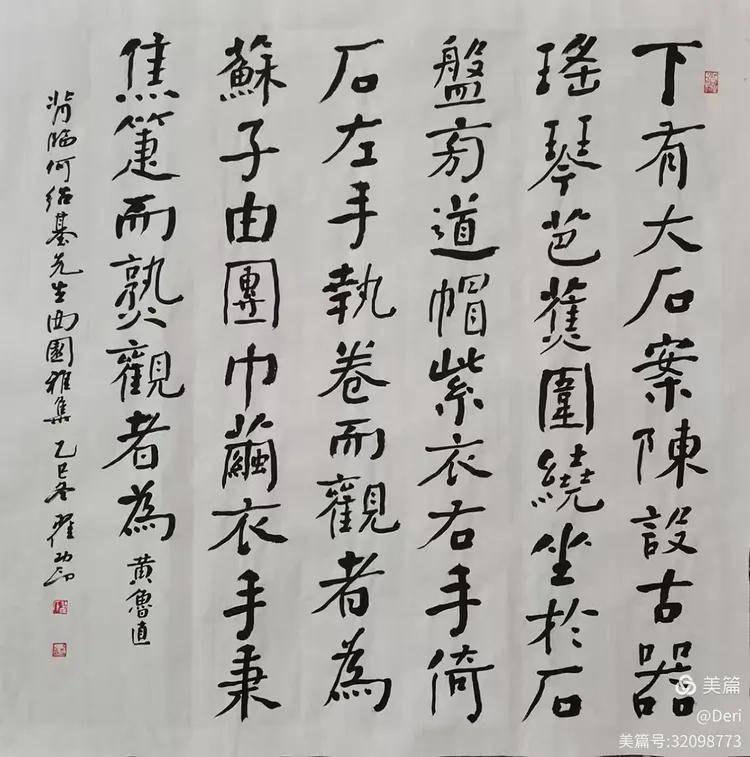 下有大石案陳設古器
瑤琴芭蕉圍繞坐於石
盤旁道帽紫衣右手倚
石左手執卷而觀者為
蘇子由團巾繭衣手秉
焦箑而熟觀者為黃魯直
背临何绍基先生西園雅集 乙巳冬 翟
美篇
@Deri
美篇号:32098773